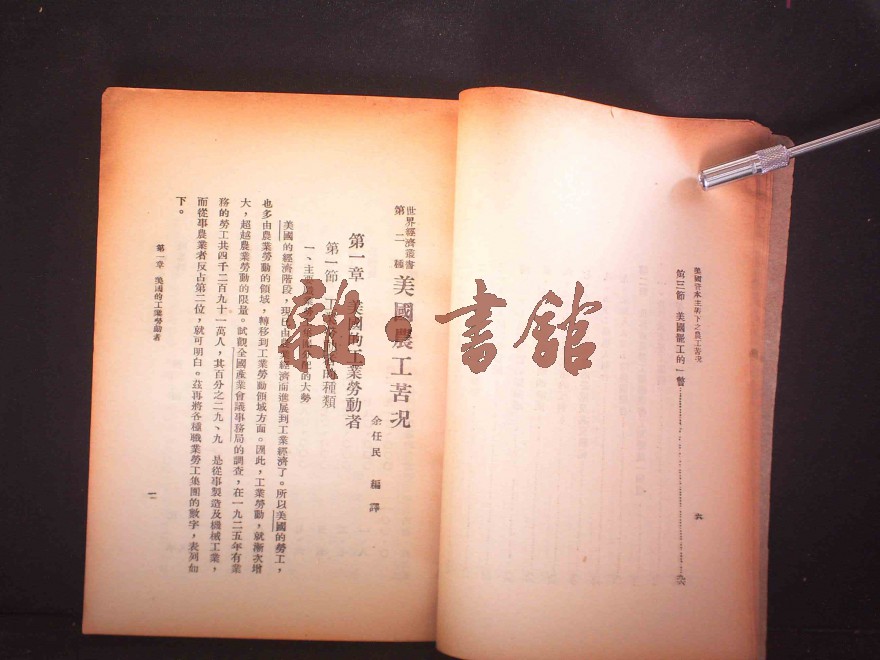 美國資本主義下之農工苦況
第三節 美國罷工的一瞥
六
世界經濟叢書
第二種
美國農工苦況
余任民 編譯
第一章 美國的工業勞動者
第一節 工業 的種類
一、主要 配的大勢
美國的經濟階段,現已由農業經濟而進展到工業經濟了。所以美國的勞工,
也多由農業勞動的領域,轉移到工業勞動領域方面。因此,工業勞動,就漸次增
大,超越農業勞動的限量。試觀全國產業會議事務局的調查,在一九二五年有業
務的勞工共四千二百九十一萬人,其百分之二九、九 是從事製造及機械工業,
而從事農業者反占第二位,就可明白。茲再將各種職業勞工集團的數字,表列如
下。
第一章 美國的工業勞動者
一
雜·書館